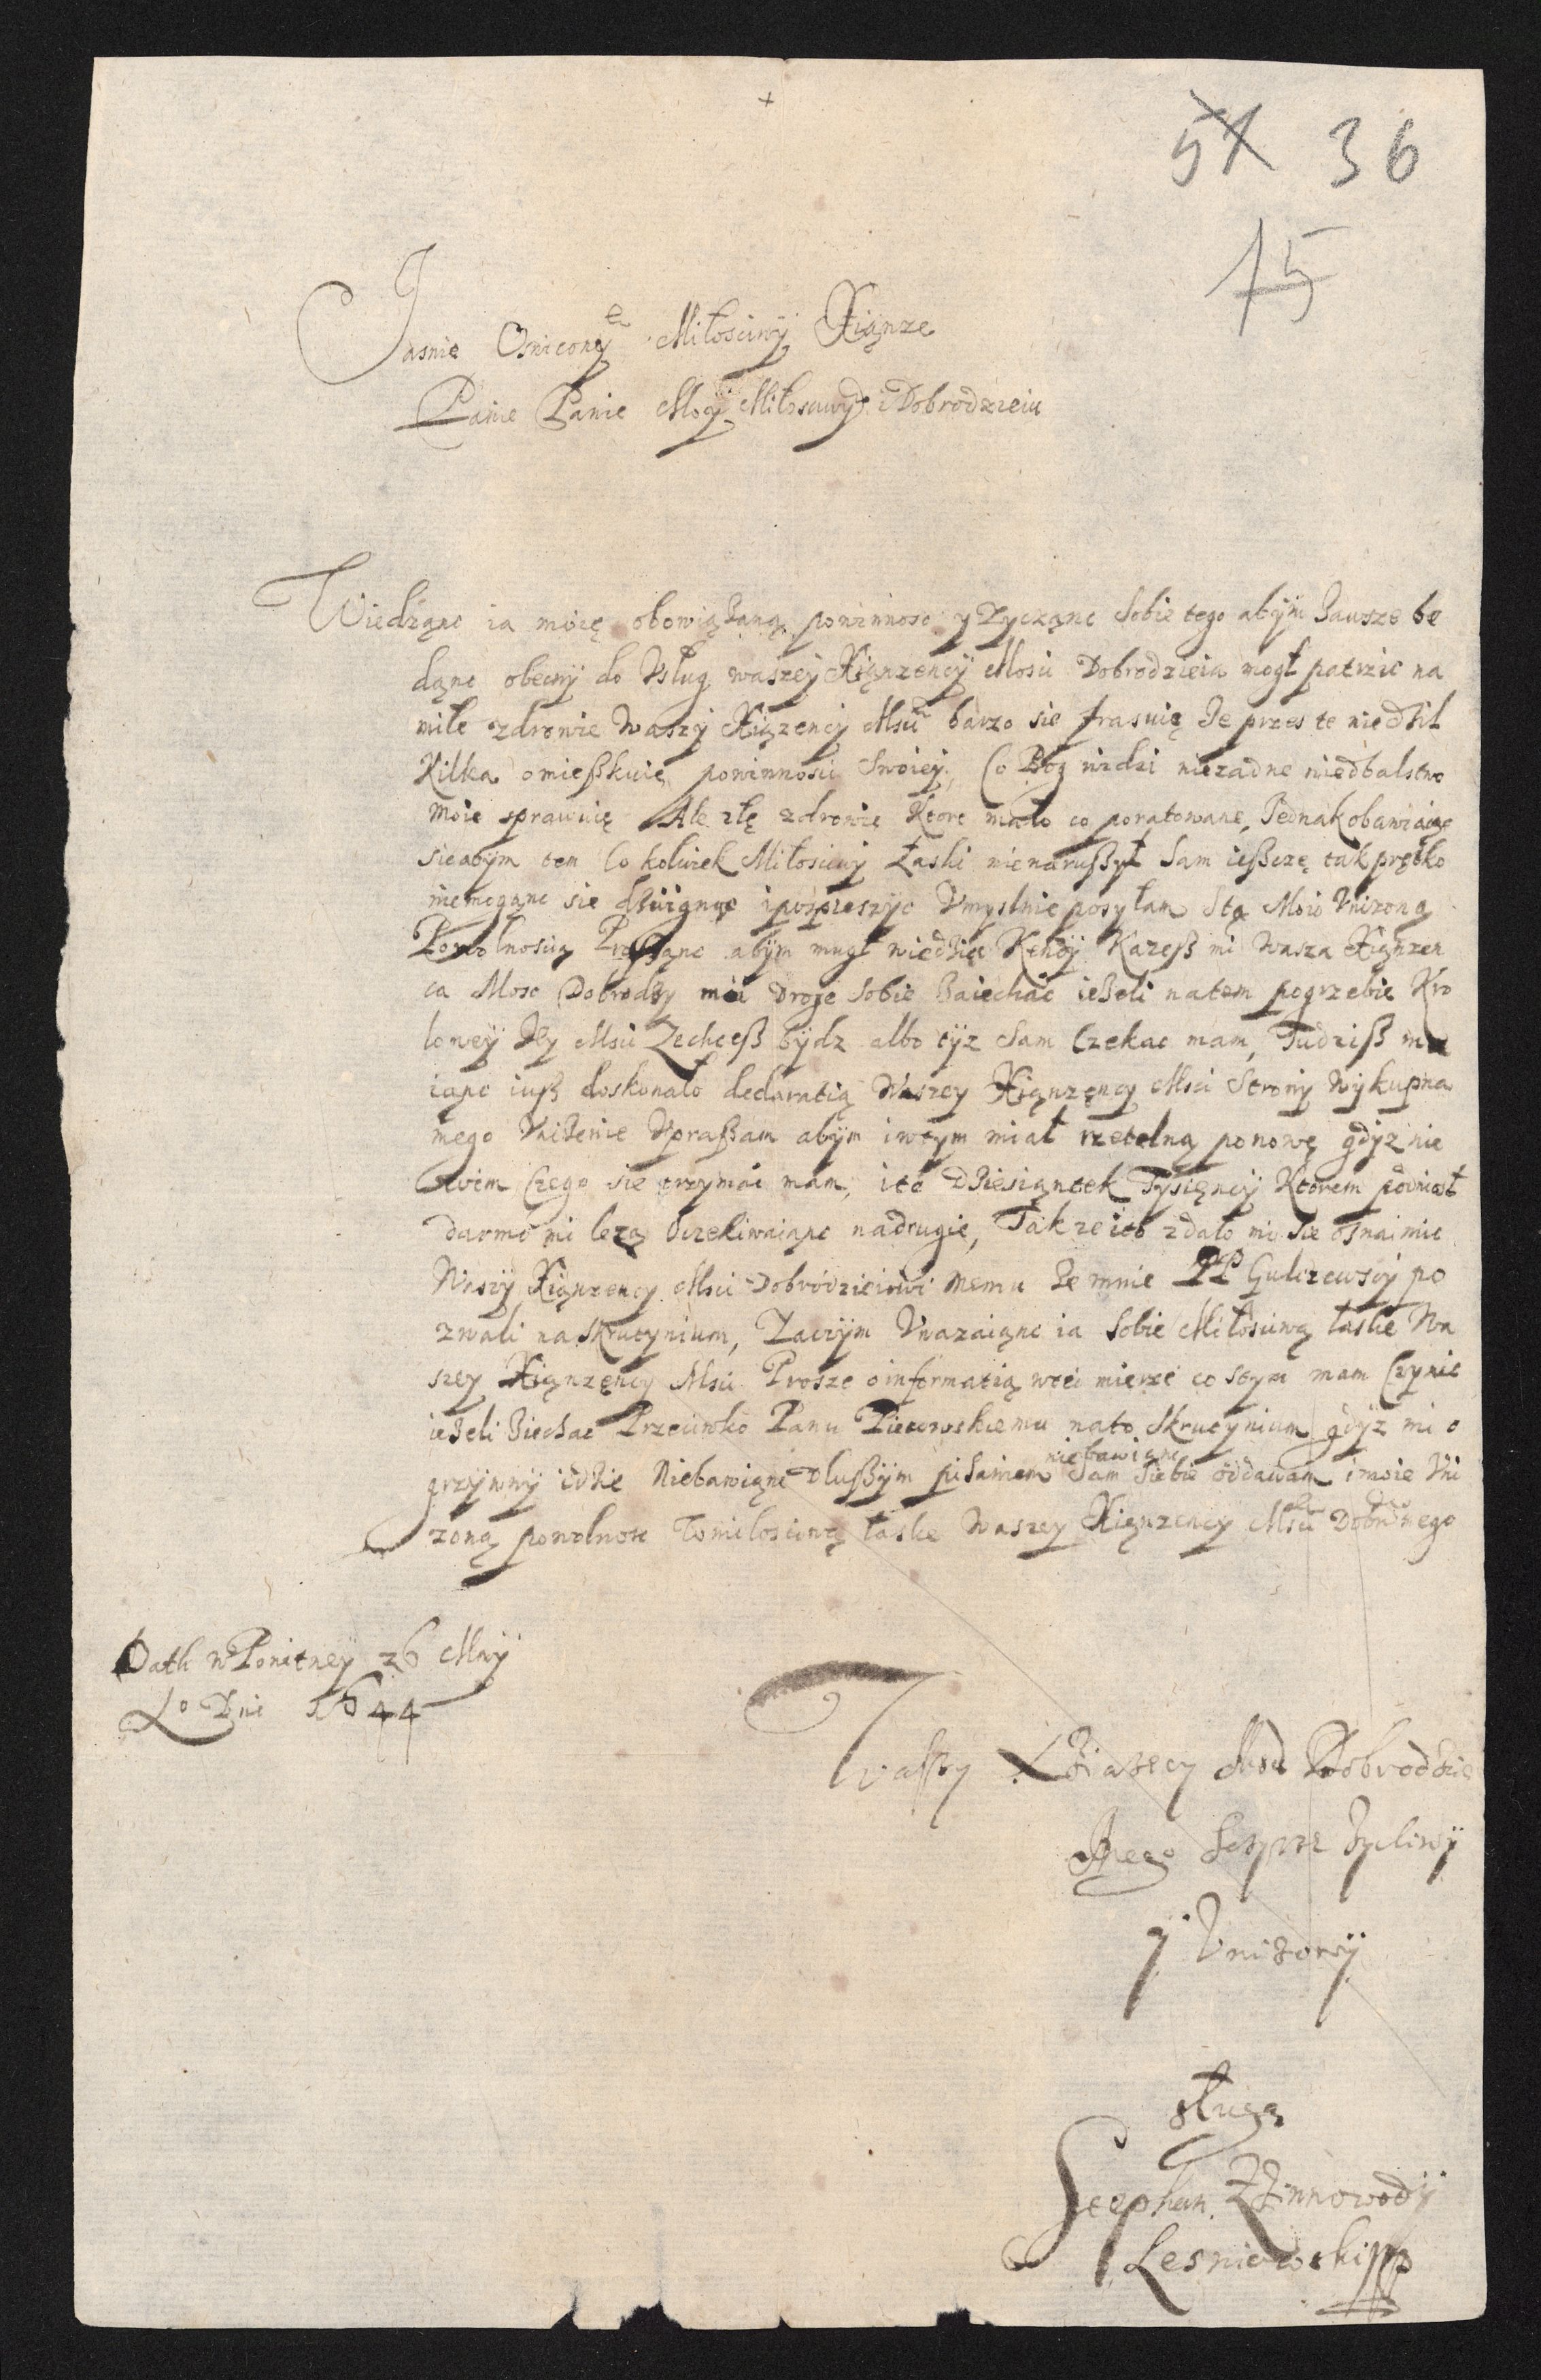 +
57 36
15
Jasnie Osnicony Miłosciwÿ Xiąnze
Panie Panie Moÿ Miłosciwÿ i Dobrodzieiu
Wiedząnc ia moię obowiązaną powinnosc y zycząnc sobie tego abÿm zawsze be
dąnc obecnÿ do Vsług waszeÿ Xiąnzencÿ Mosci Dobrodzieia mogł patrzic na
miłe zdrowie Waszÿ Xiązencÿ Msci barzo sie frasuię ze przes te niedzil
Kilka omießkuię powinnosci swoieÿ, Co Bog widzi niezadne niedbalstwo
moie sprawuię Ale złę zdrowie Ktore mało co poratowane, Jednak obawiaiąc
sie abÿm tem Co kolwiek Miłosciwÿ Łaski nie narußył Sam ießcze tak prętko
niemogąnc sie dzwignąc i pospieszyc Vmyslnie posyłam Stą Moio Vnizoną
Powolnoscią Proßąnc abÿm mugł wiedziec Kendÿ Kazeß mi Wasza Xiąnzen
ca Mosc Dobrodzy moi Droge sobie zaiechac iezeli natem pogrzebie Kro
loweÿ Jeÿ Msci Zechceß bÿdz albo tÿz Sam Czekac mam, Tudziß ma
iąnc iuß doskonało declaratią Waszey Xiąnzęncy Msci Stronÿ Wÿkupna
mego Vnizenie Vpraßam abÿm iwtym miał rzetelną ponowę gdÿz nie
wiem Czego sie trzymac mam, ite dziesiąntek Tysięncÿ Ktorem podniosł
darmo mi lezą Oczekiwaiąnc nadrugie, Takze ito zdało mi sie osnaimic
Waszÿ Xiąnzencÿ Msci Dobrodzieiowi memu ze mnie PP Gulczewscÿ po
zwali na Skrutynium, Zaczÿm Vwazaiąnc ia sobie Miłosciwą łaske Wa
szey Xiąnzęncy Msci Prosze oinformatią wtei mierze co stym mam Czynic
iezeli ziechac Przeciwko Panu Piecowskiemu nato Skrutynium gdÿz mi o
grzÿwnÿ idzie Niebawiąnc Dlußÿm pisaniem niebawiąnc Sam Siebie oddawam imoie Vni
zoną powolnosc Tomilosciwą łaske Waszey Xiąnzencÿ Msci Dobro mego
Dath w Ponitneÿ 26 Maÿ
Ao Dni 1644
Waßy Xiazecy Mosci Dobrodzie
Mego Szczyrze Zyclivÿ
ÿ Vnizonÿ
sługa
Stephan Z Zimnowodÿ
Lesniowski mp